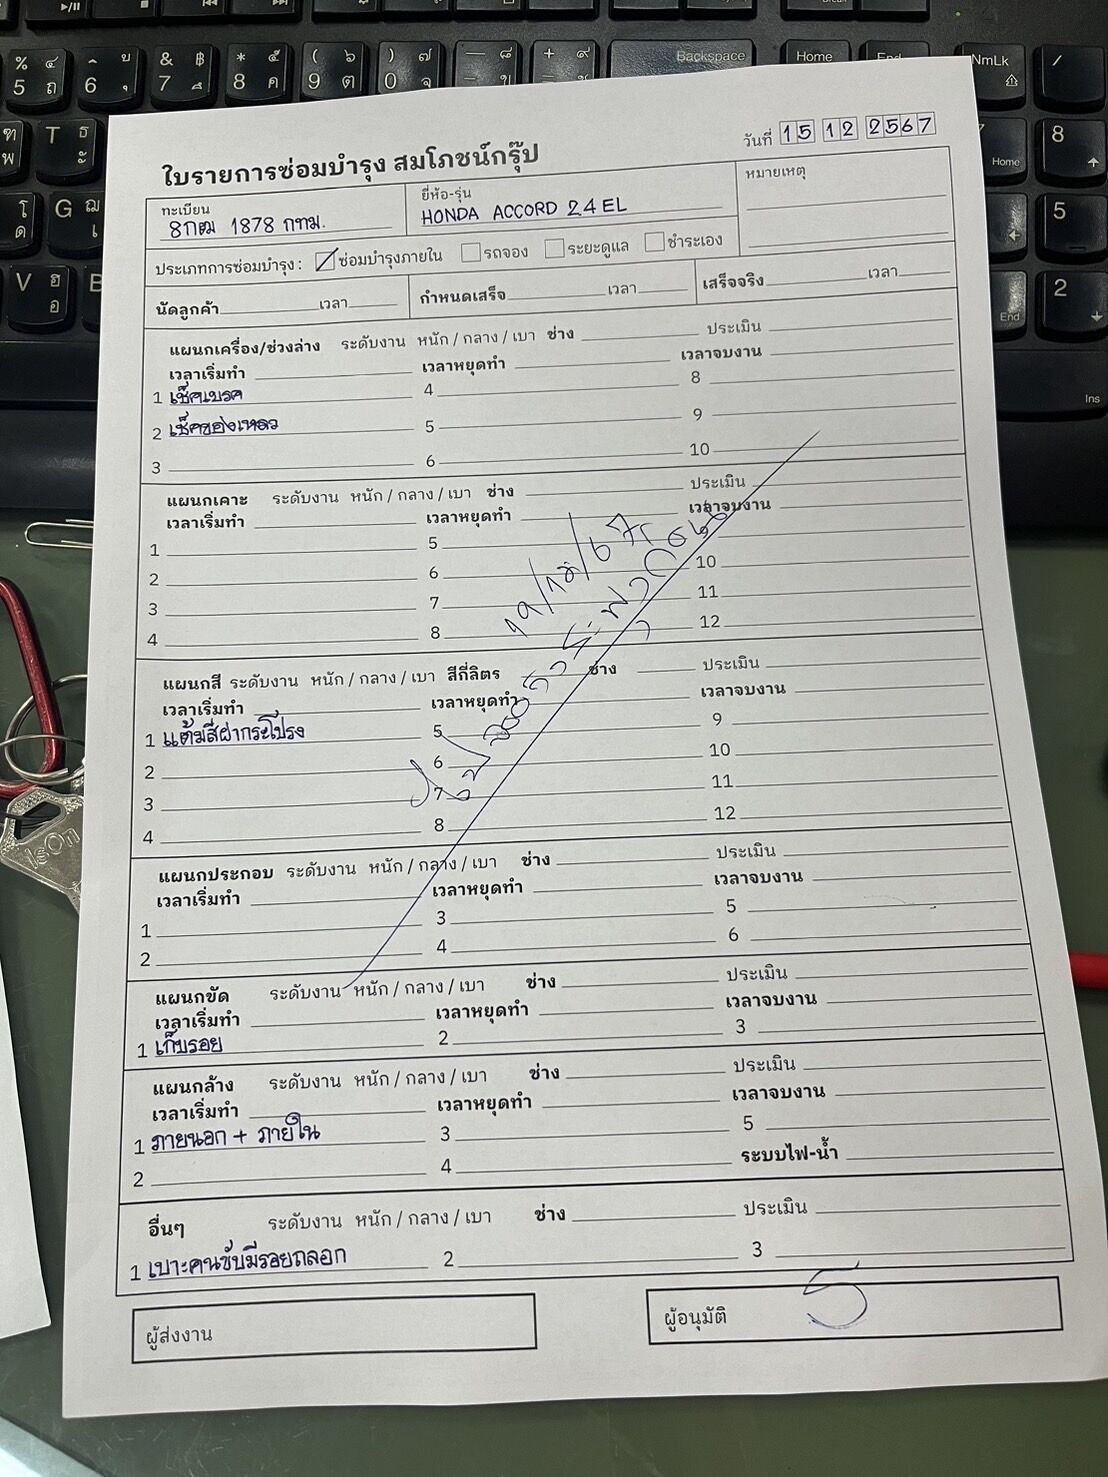 วันที่ 15 12 2567
ใบรายการซ่อมบำรุง สมโภชน์กรุ๊ป
ทะเบียน 8กฒ 1878 กทม.
ยี่ห้อ-รุ่น HONDA ACCORD 2.4 EL
หมายเหตุ
ประเภทการซ่อมบำรุง : ซ่อมบำรุงภายใน รถจอง ระยะดูแล ชำระเอง
นัดลูกค้า เวลา กำหนดเสร็จ เวลา เสร็จจริง เวลา
แผนกเครื่อง/ช่วงล่าง ระดับงาน หนัก / กลาง / เบา ช่าง ประเมิน
เวลาเริ่มทำ เวลาหยุดทำ เวลาจบงาน
1 เช็คเบรค 4 8
2 เช็คของเหลว 5 9
3 6 10
แผนกเคาะ ระดับงาน หนัก / กลาง / เบา ช่าง ประเมิน
เวลาเริ่มทำ เวลาหยุดทำ เวลาจบงาน
1 5
2 6 10
3 7 11
4 8 12
แผนกสี ระดับงาน หนัก / กลาง / เบา สีกี่ลิตร ช่าง ประเมิน
เวลาเริ่มทำ เวลาหยุดทำ เวลาจบงาน
1 แต้มสีฝากระโปรง 5 9
2 6 10
3 7 11
4 8 12
แผนกประกอบ ระดับงาน หนัก / กลาง / เบา ช่าง ประเมิน
เวลาเริ่มทำ เวลาหยุดทำ เวลาจบงาน
1 3 5
2 4 6
แผนกขัด ระดับงาน หนัก / กลาง / เบา ช่าง ประเมิน
เวลาเริ่มทำ เวลาหยุดทำ เวลาจบงาน
1 เก็บรอย 2 3
แผนกล้าง ระดับงาน หนัก / กลาง / เบา ช่าง ประเมิน
เวลาเริ่มทำ เวลาหยุดทำ เวลาจบงาน
1 ภายนอก + ภายใน 3 5
2 4 ระบบไฟ-น้ำ
อื่นๆ ระดับงาน หนัก / กลาง / เบา ช่าง ประเมิน
1 เบาะคนขับมีรอยถลอก 2 3
ผู้ส่งงาน ผู้อนุมัติ